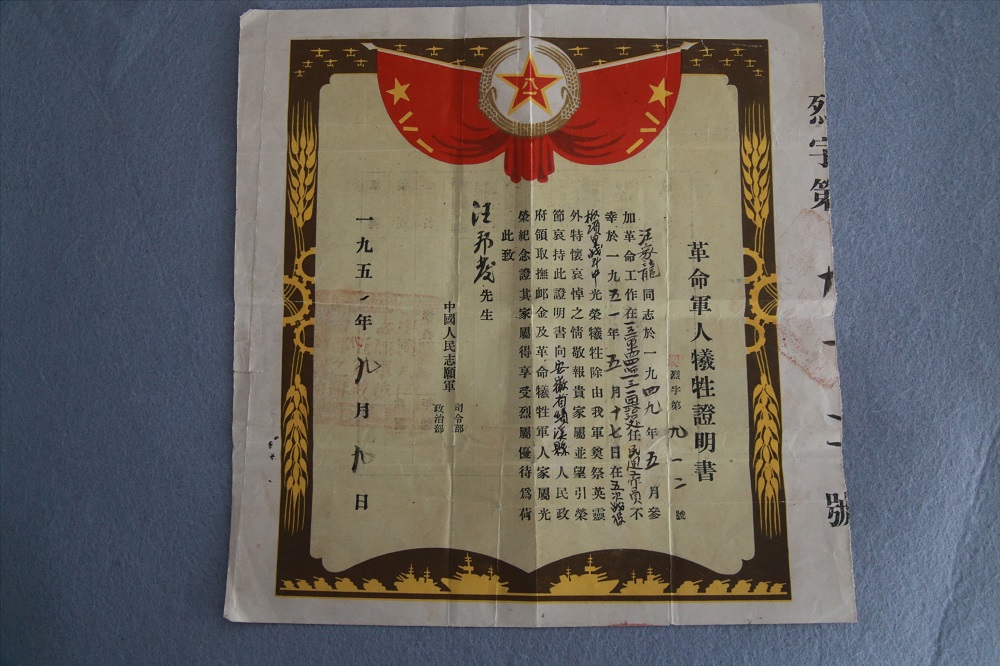 革命軍人犧牲證明書
烈字第九一二號
汪家龍同志於一九四九年五月參
加革命工作在任不
幸於一九五一年五月十七日在五次
光榮犧牲除由我軍奠祭英靈
外特懷哀悼之情敬報貴家屬並望引榮
節哀持此證明書向安徽省績溪縣人民政
府領取撫卹金及革命犧牲軍人家屬光
榮紀念證其家屬得享受烈屬優待爲荷
此致
汪邦先生
中國人民志願軍
司令部
政治部
一九五一年九月九日
烈字第
號
八一
八一
八一